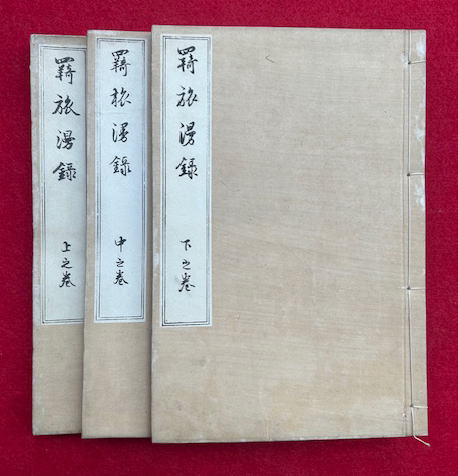 羇旅漫録
上之巻
羇旅漫録
中之巻
羇旅漫録
下之巻